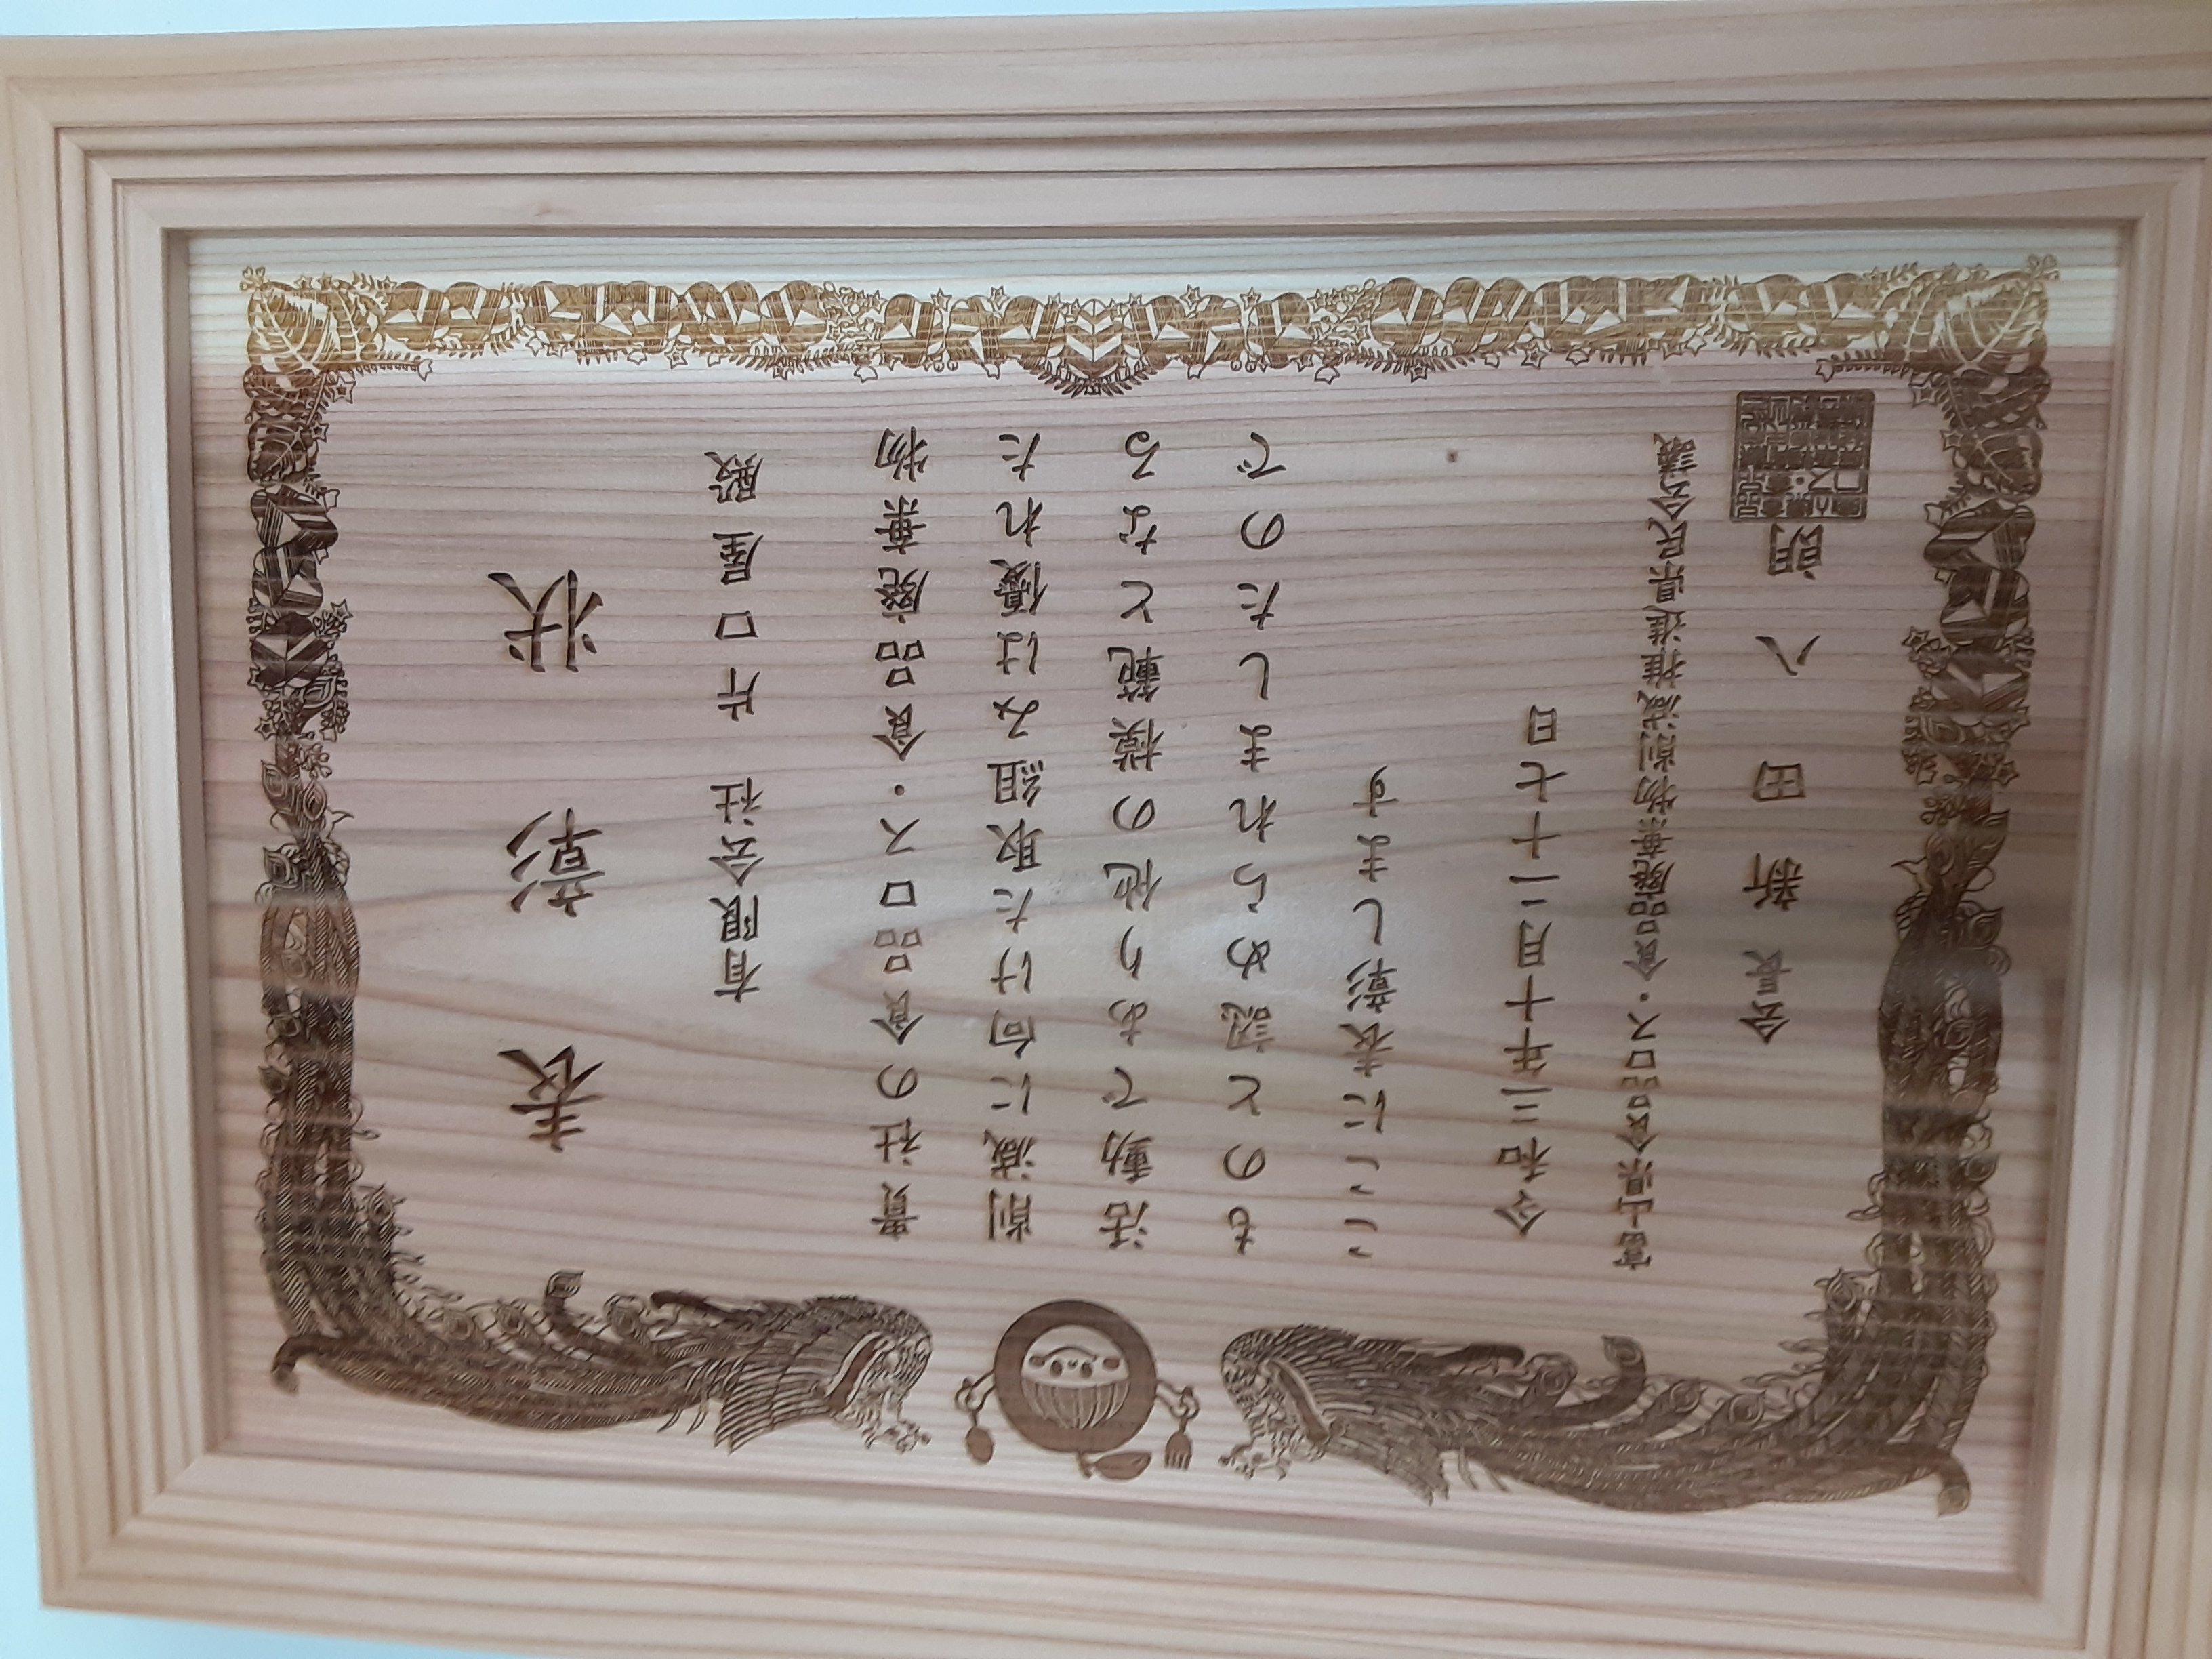 表彰状
有限会社 片口屋殿
貴社の食品ロス・食品廃棄物
削減に向けた取組みは優れた
活動であり他の模範となる
ものと認められましたので
ここに表彰します
令和三年十月二十七日
富山県食品ロス・食品廃棄物削減推進県民会議
会長 新田八朗